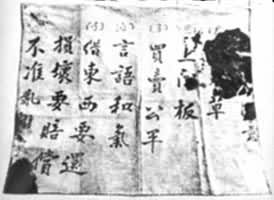 草
板
(3) 買賣公平
言語和氣
(5) 借東西要還
損壞要賠償
不准亂